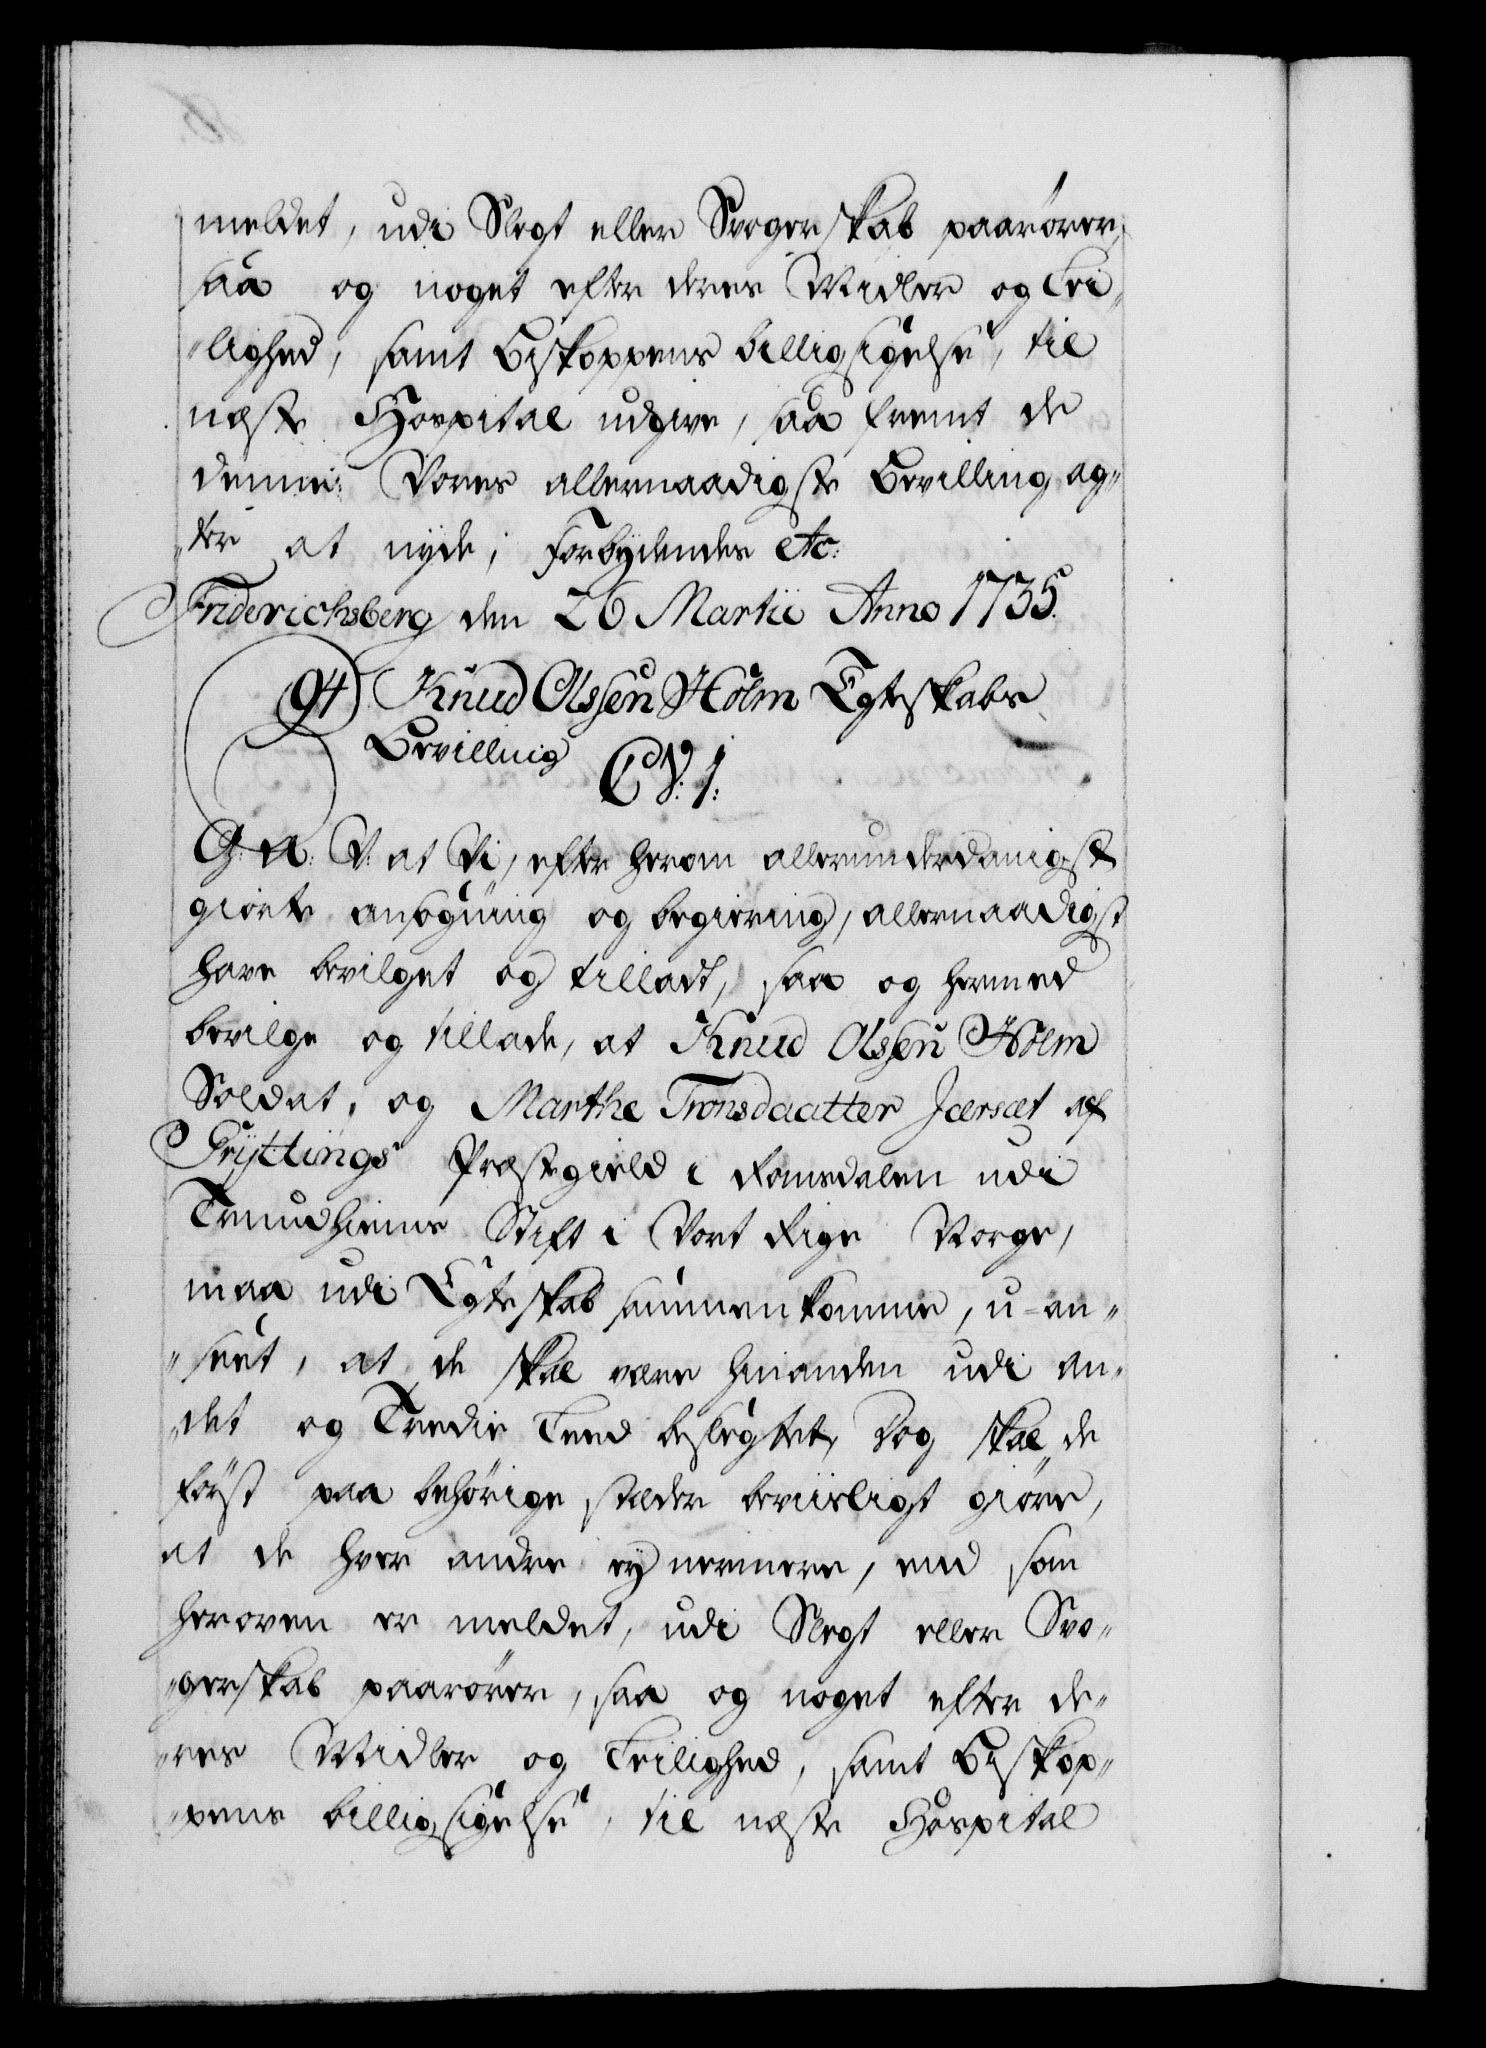 meldet, udi Slegt eller Svogerskab paarører,
saa og noget efter deres Midler og Lei„
„lighed, samt Biskoppens billigsigelse, til
neste Hospital udgive, saa fremt de
denne Vores allernaadigste Bevilling ag„
„ter at nyde; Forbydendes etc:
Friderichsberg den 26 Martii Anno 1735.
94 Knud Olssen Holm Egteskabs
Bevilling
G: A: V: at Vi, efter herom allerunderdanigst
giorte ansøgning og begiering, allernaadigst
have bevilget og tilladt, saa og hermed
bevilge og tillade, at Knud Olssen Holm
Soldat, og Marthe Tronsdaatter Jærsæt af
Gryttings Præstegield i Romsdalen udi
Trundhiems Stift i Vort Rige Norge,
maa udi Egteskab sammenkomme, u-an„
„seet, at de skal være hinanden udi an„
„det og Tredie Leed beslegtet, Dog skal de
først paa behørige stæder beviisligt giøre,
at de hver andre ey nermere, end som
heroven er meldet, udi Slegt eller Svo„
„gerskab paarører, saa og noget efter de„
„res Midler og Leilighed, samt Biskop„
„pens billigsigelse, til neste Hospital